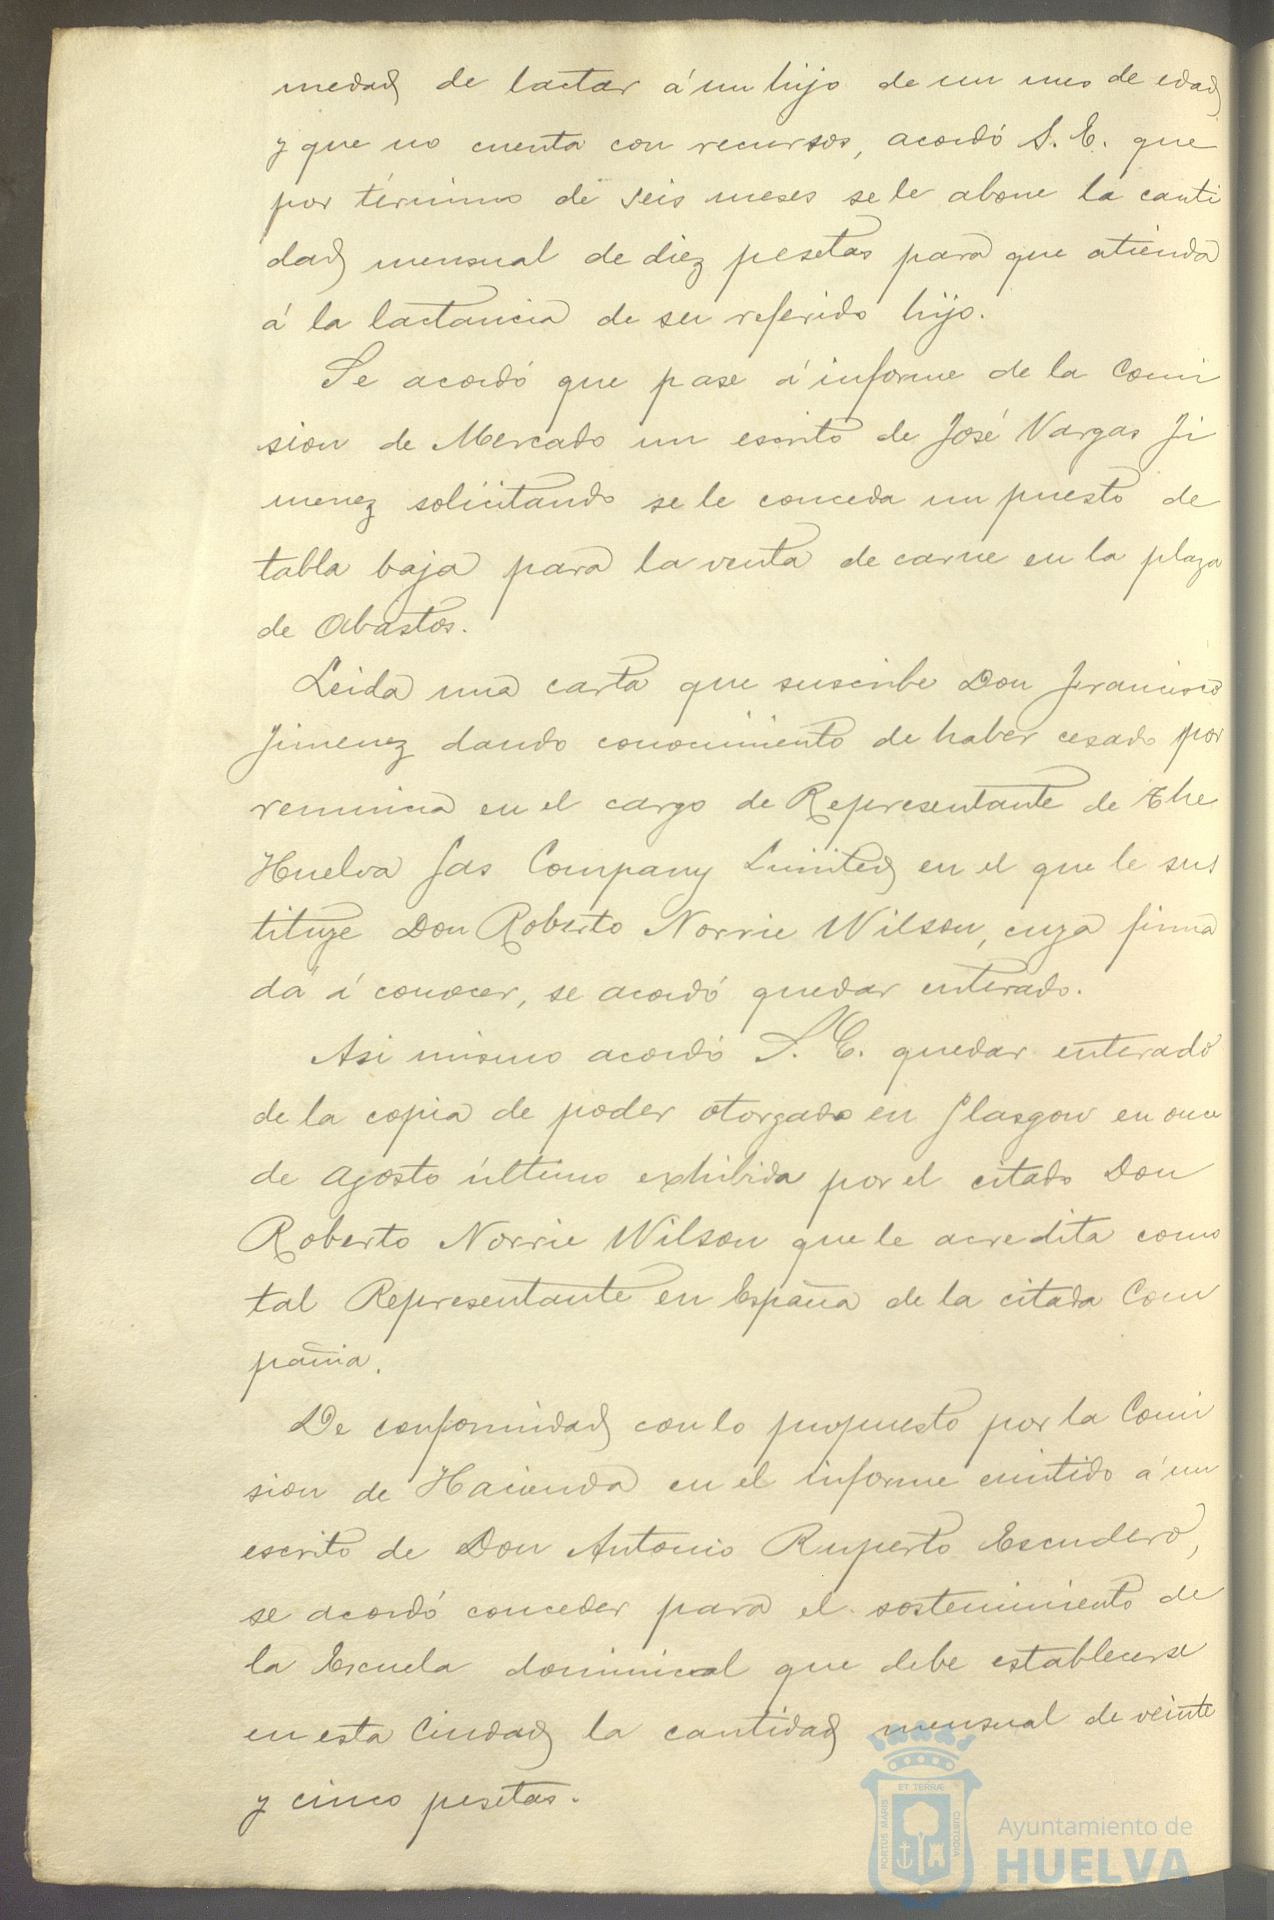 medad de lactar á un hijo de un mes de edad
y que no cuenta con recursos, acordó S. E. que
por término de seis meses se le abone la canti
dad mensual de diez pesetas para que atienda
á la lactancia de su referido hijo.
Se acordó que pase á informe de la Comi
sion de Mercado un escrito de José Vargas Ji
menez solicitando se le conceda un puesto de
tabla baja para la venta de carne en la plaza
de Abastos.
Leida una carta que suscribe Don Francisco
Jimenez dando conocimiento de haber cesado por
renuncia en el cargo de Representante de The
Huelva Gas Company Limited en el que le sus
tituye Don Roberto Norrie Wilson, cuya firma
dá á conocer, se acordó quedar enterado.
Asi mismo acordó S. E. quedar enterado
de la copia de poder otorgado en Glasgow en once
de Agosto último exhibida por el citado Don
Roberto Norrie Wilson que le acredita como
tal Representante en España de la citada Com
pañia.
De conformidad con lo propuesto por la Comi
sion de Hacienda en el informe emitido á un
escrito de Don Antonio Ruperto Escudero,
se acordó conceder para el sostenimiento de
la Escuela dominical que debe establecerse
en esta Ciudad la cantidad mensual de veinte
y cinco pesetas.
ET TERRÆ
PORTUS MARIS
CUSTODIA
Ayuntamiento de
HUELVA